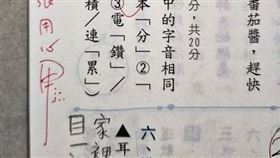 番茄醬，趕快
分，共20分
中的字音相同
本「分」②「
③電「鑽」／
積／連「累」）
六、
▲耳
家裡
目一